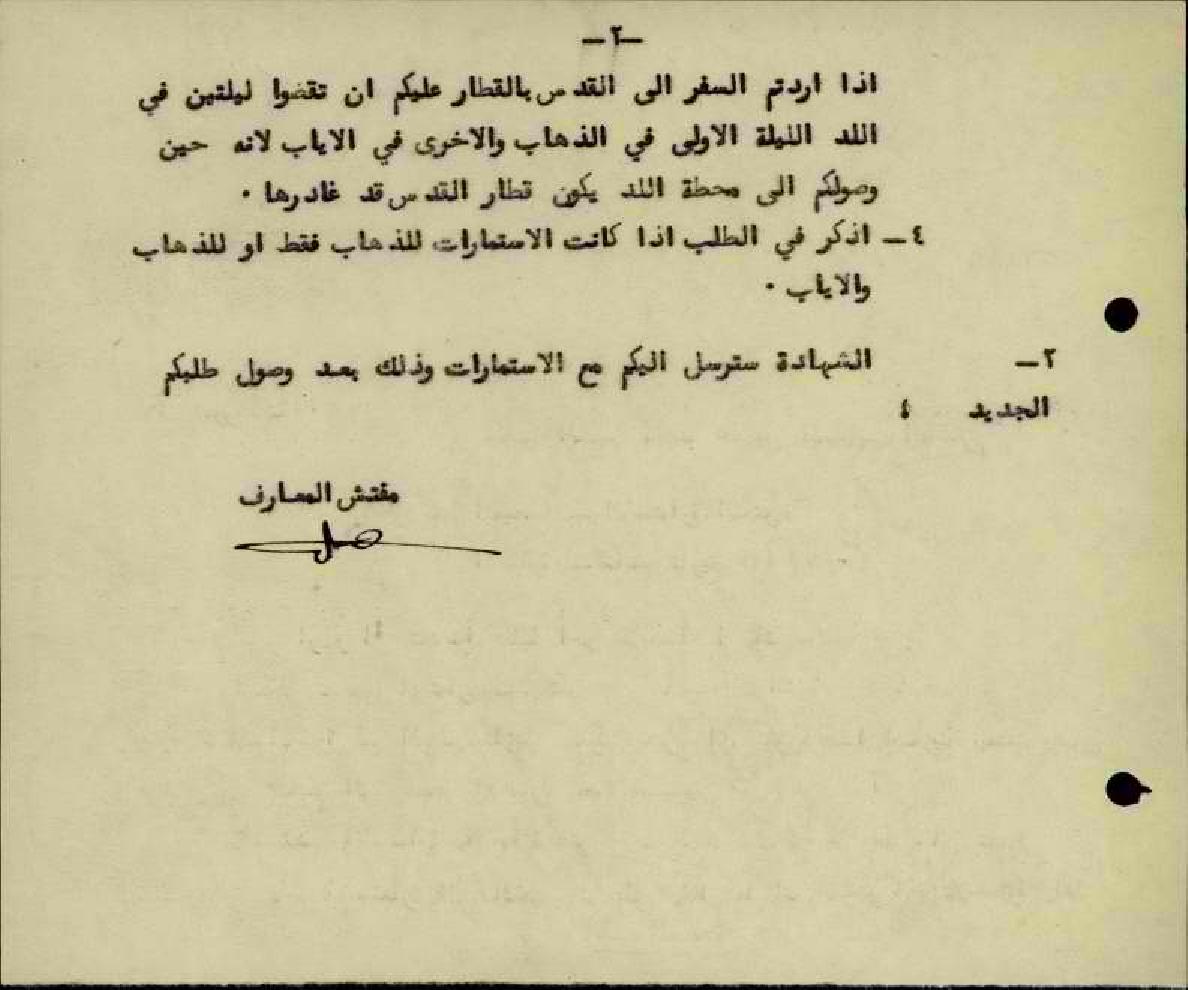 -٢-
اذا اردتم السفر الى القدس بالقطار عليكم ان تقضوا ليلتين في
اللد الليلة الاولى في الذهاب والاخرى في الاياب لانه حين
وصولكم الى محطة اللد يكون قطار القدس قد غادرها .
٤- اذكر في الطلب اذا كانت الاستمارات للذهاب فقط او للذهاب
والاياب .
٢- الشهادة سترسل اليكم مع الاستمارات وذلك بعد وصول طلبكم
الجديد ؛
مفتش المعارف